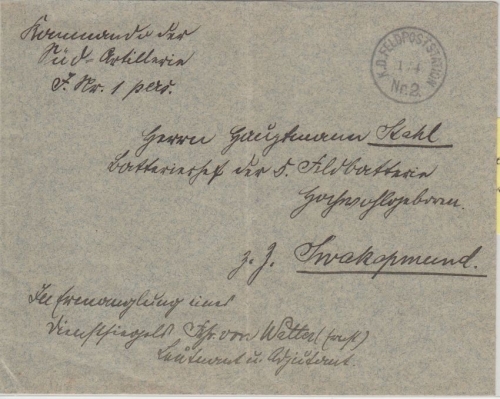 Kommando der
Süd-Artillerie
J. Nr. 1 pers.
K.D. FELDPOSTSTATION
No 2.
Herrn Hauptmann Stahl
Batteriechef der 5. Feldbatterie
Hochwohlgeboren.
z. Z. Swakopmund.
In Ermanglung eines
Dienstsiegels Frhr. von Watter
Leutnant u. Adjutant.